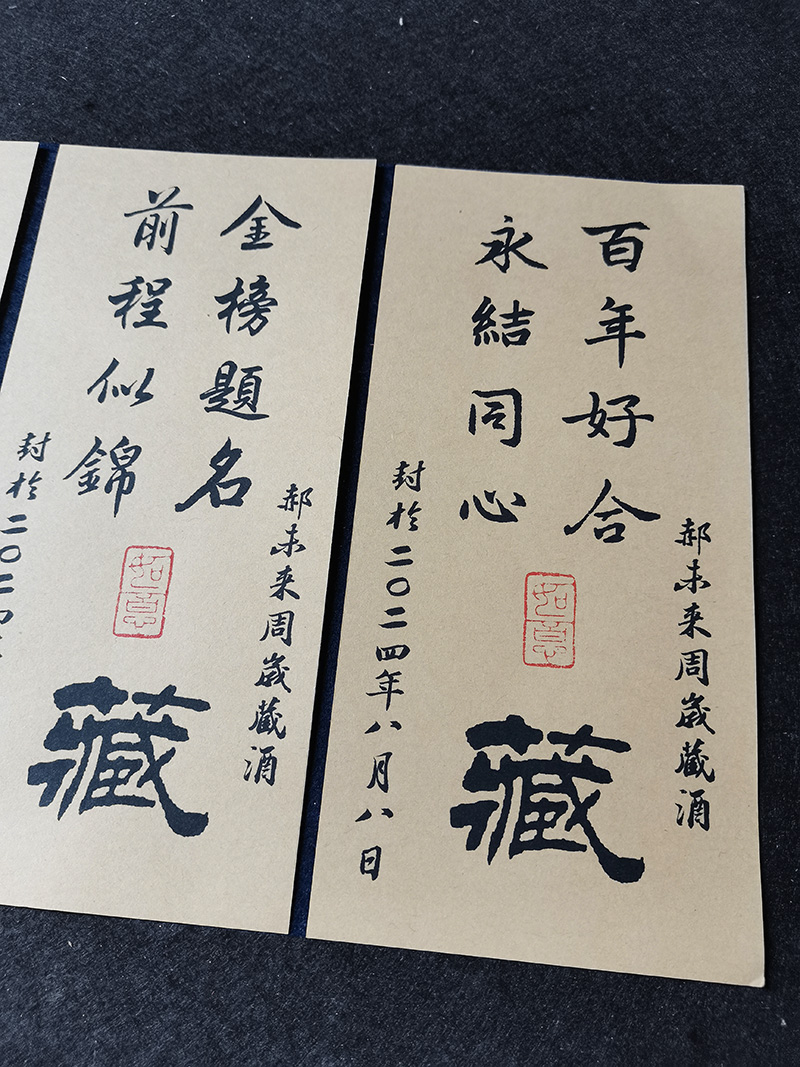 郝未来周嵗藏酒
百年好合
永结同心
如意
藏
封於二〇二四年八月八日
郝未来周嵗藏酒
金榜題名
前程似錦
如意
藏
封於二〇二四